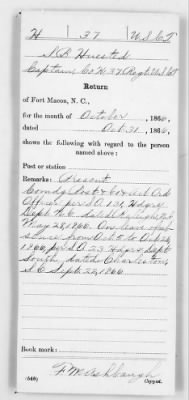 H | 37 | U.S.C.T.
N.B. Huested
Captain, Co. K, 37 Reg't U.S.C.T.
Return
of Fort Macon, N. C.,
for the month of October, 1866,
dated Oct 31, 1866,
shows the following with regard to the person
named above:
Post or station
Remarks: Present
Comdg Post & Co & act Ord
Officer per S.O. 131, Hdqrs
Dept N.C. dated Raleigh N.C.
May 28, 1866. On leave of ab-
sence from Oct 5 to Oct 26
1866, per S.O. 23 Hdqrs Dept
South, dated Charleston
S.C. Sept. 22, 1866.
Book mark:
(546) Copyist.